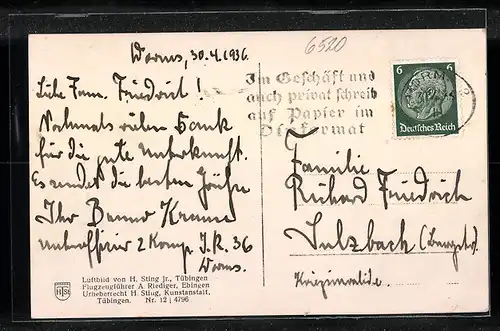 Worms, 30.4.1936.
Liebe Fam. Friedrich!
Nochmals vielen Dank
für die gute Unterkunft.
Es sendet die besten Grüße
Ihr Benno
Unteroffizier 2 Komp. I.R. 36
Worms.
Luftbild von H. Sting jr., Tübingen
Flugzeugführer A Riediger, Ebingen
Urheberrecht H. Sting, Kunstanstalt,
Tübingen. Nr. 12 | 4796
HSt
6520
Im Geschäft und
auch privat schreib
auf Papier im
Dinformat
6 6
Deutsches Reich
Familie
Richard Friedrich
Sulzbach
Kriegsinvalide.